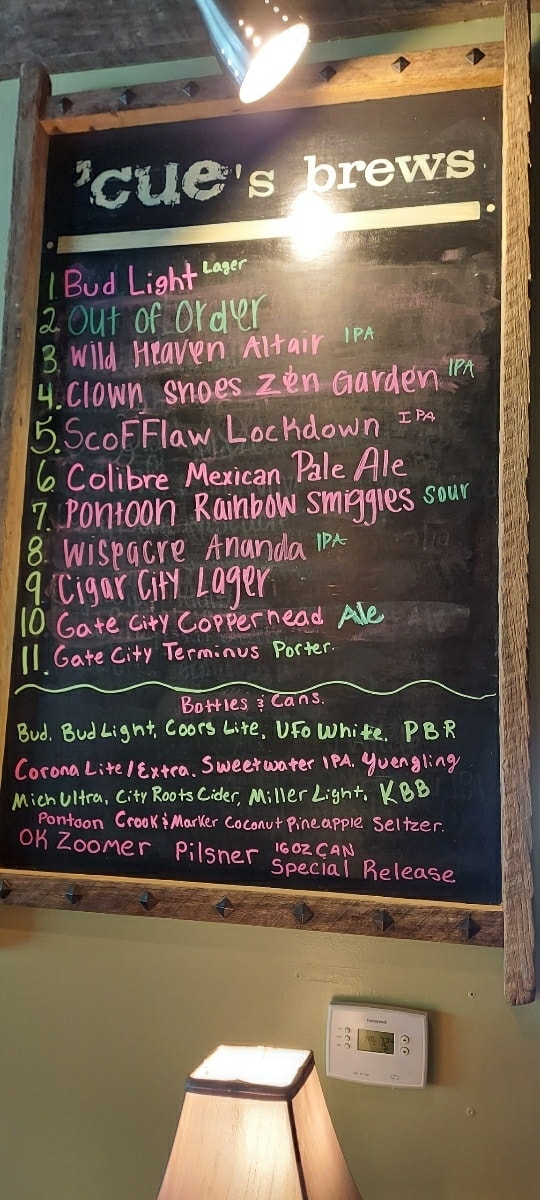 'cue's brews
1. Bud Light Lager
2. Out of Order
3. Wild Heaven Altair IPA
4. Clown Shoes Zen Garden IPA
5. ScoFFlaw Lockdown IPA
6. Colibre Mexican Pale Ale
7. Pontoon Rainbow Smiggles Sour
8. Wispacre Ananda IPA
9. Cigar City Lager
10 Gate City Copperhead Ale
11. Gate City Terminus Porter.
Bottles & Cans.
Bud. Bud Light, Coors Lite, UFO White. PBR
Corona Lite/Extra. Sweetwater IPA. Yuengling
Mich Ultra, City Roots Cider, Miller Light, KBB
Pontoon Crook & Marker Coconut Pineapple Seltzer.
OK Zoomer Pilsner 16oz CAN
Special Release
Honeywell